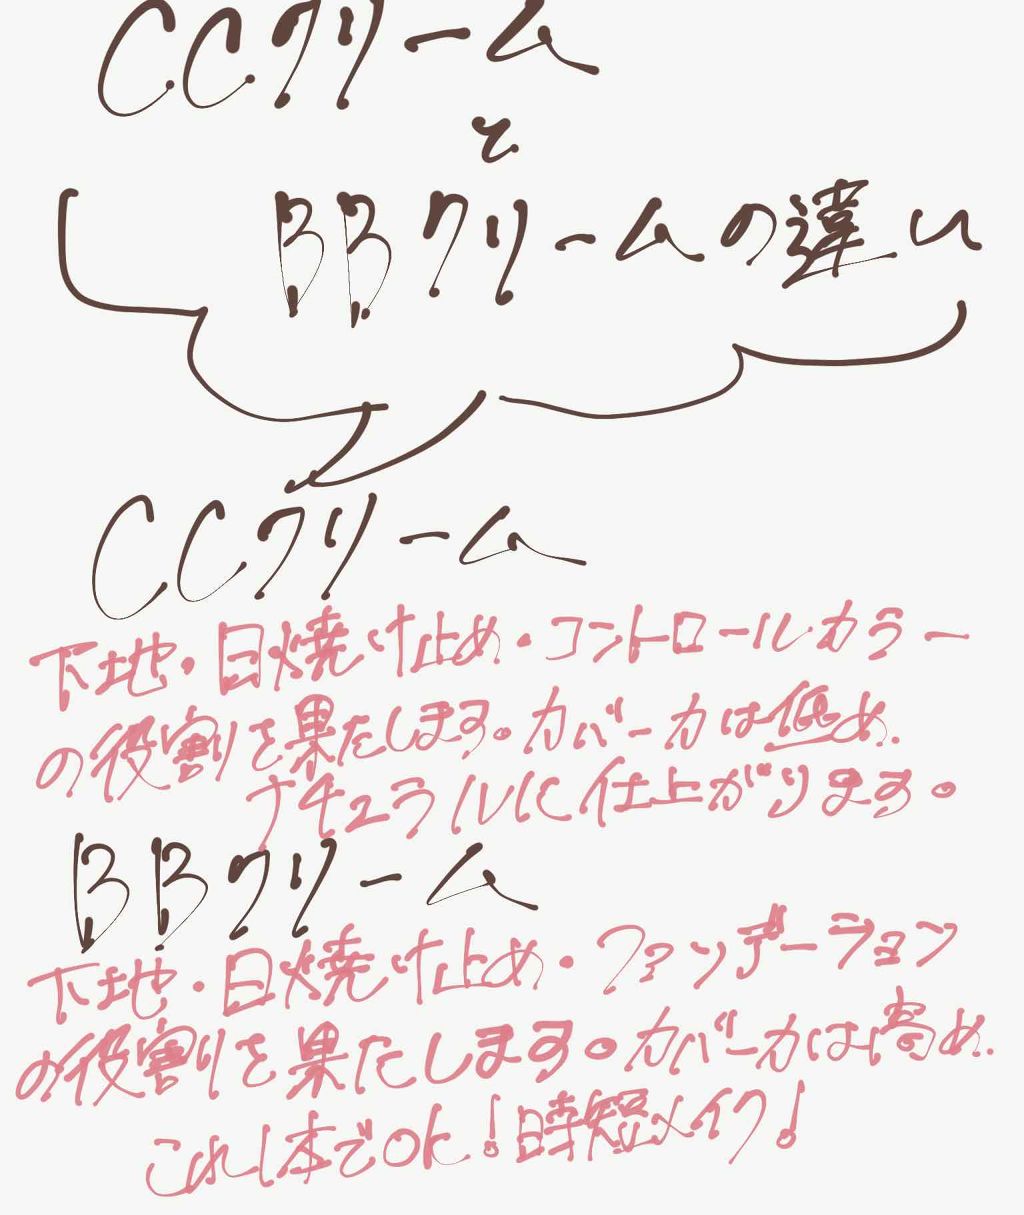 CCクリーム
と
BBクリームの違い
CCクリーム
下地・日焼け止め・コントロールカラー
の役割を果たします。カバー力は低め.
ナチュラルに仕上がります。
BBクリーム
下地・日焼け止め・ファンデーション
の役割を果たします。カバー力は高め.
これ1本でOK!時短メイク!